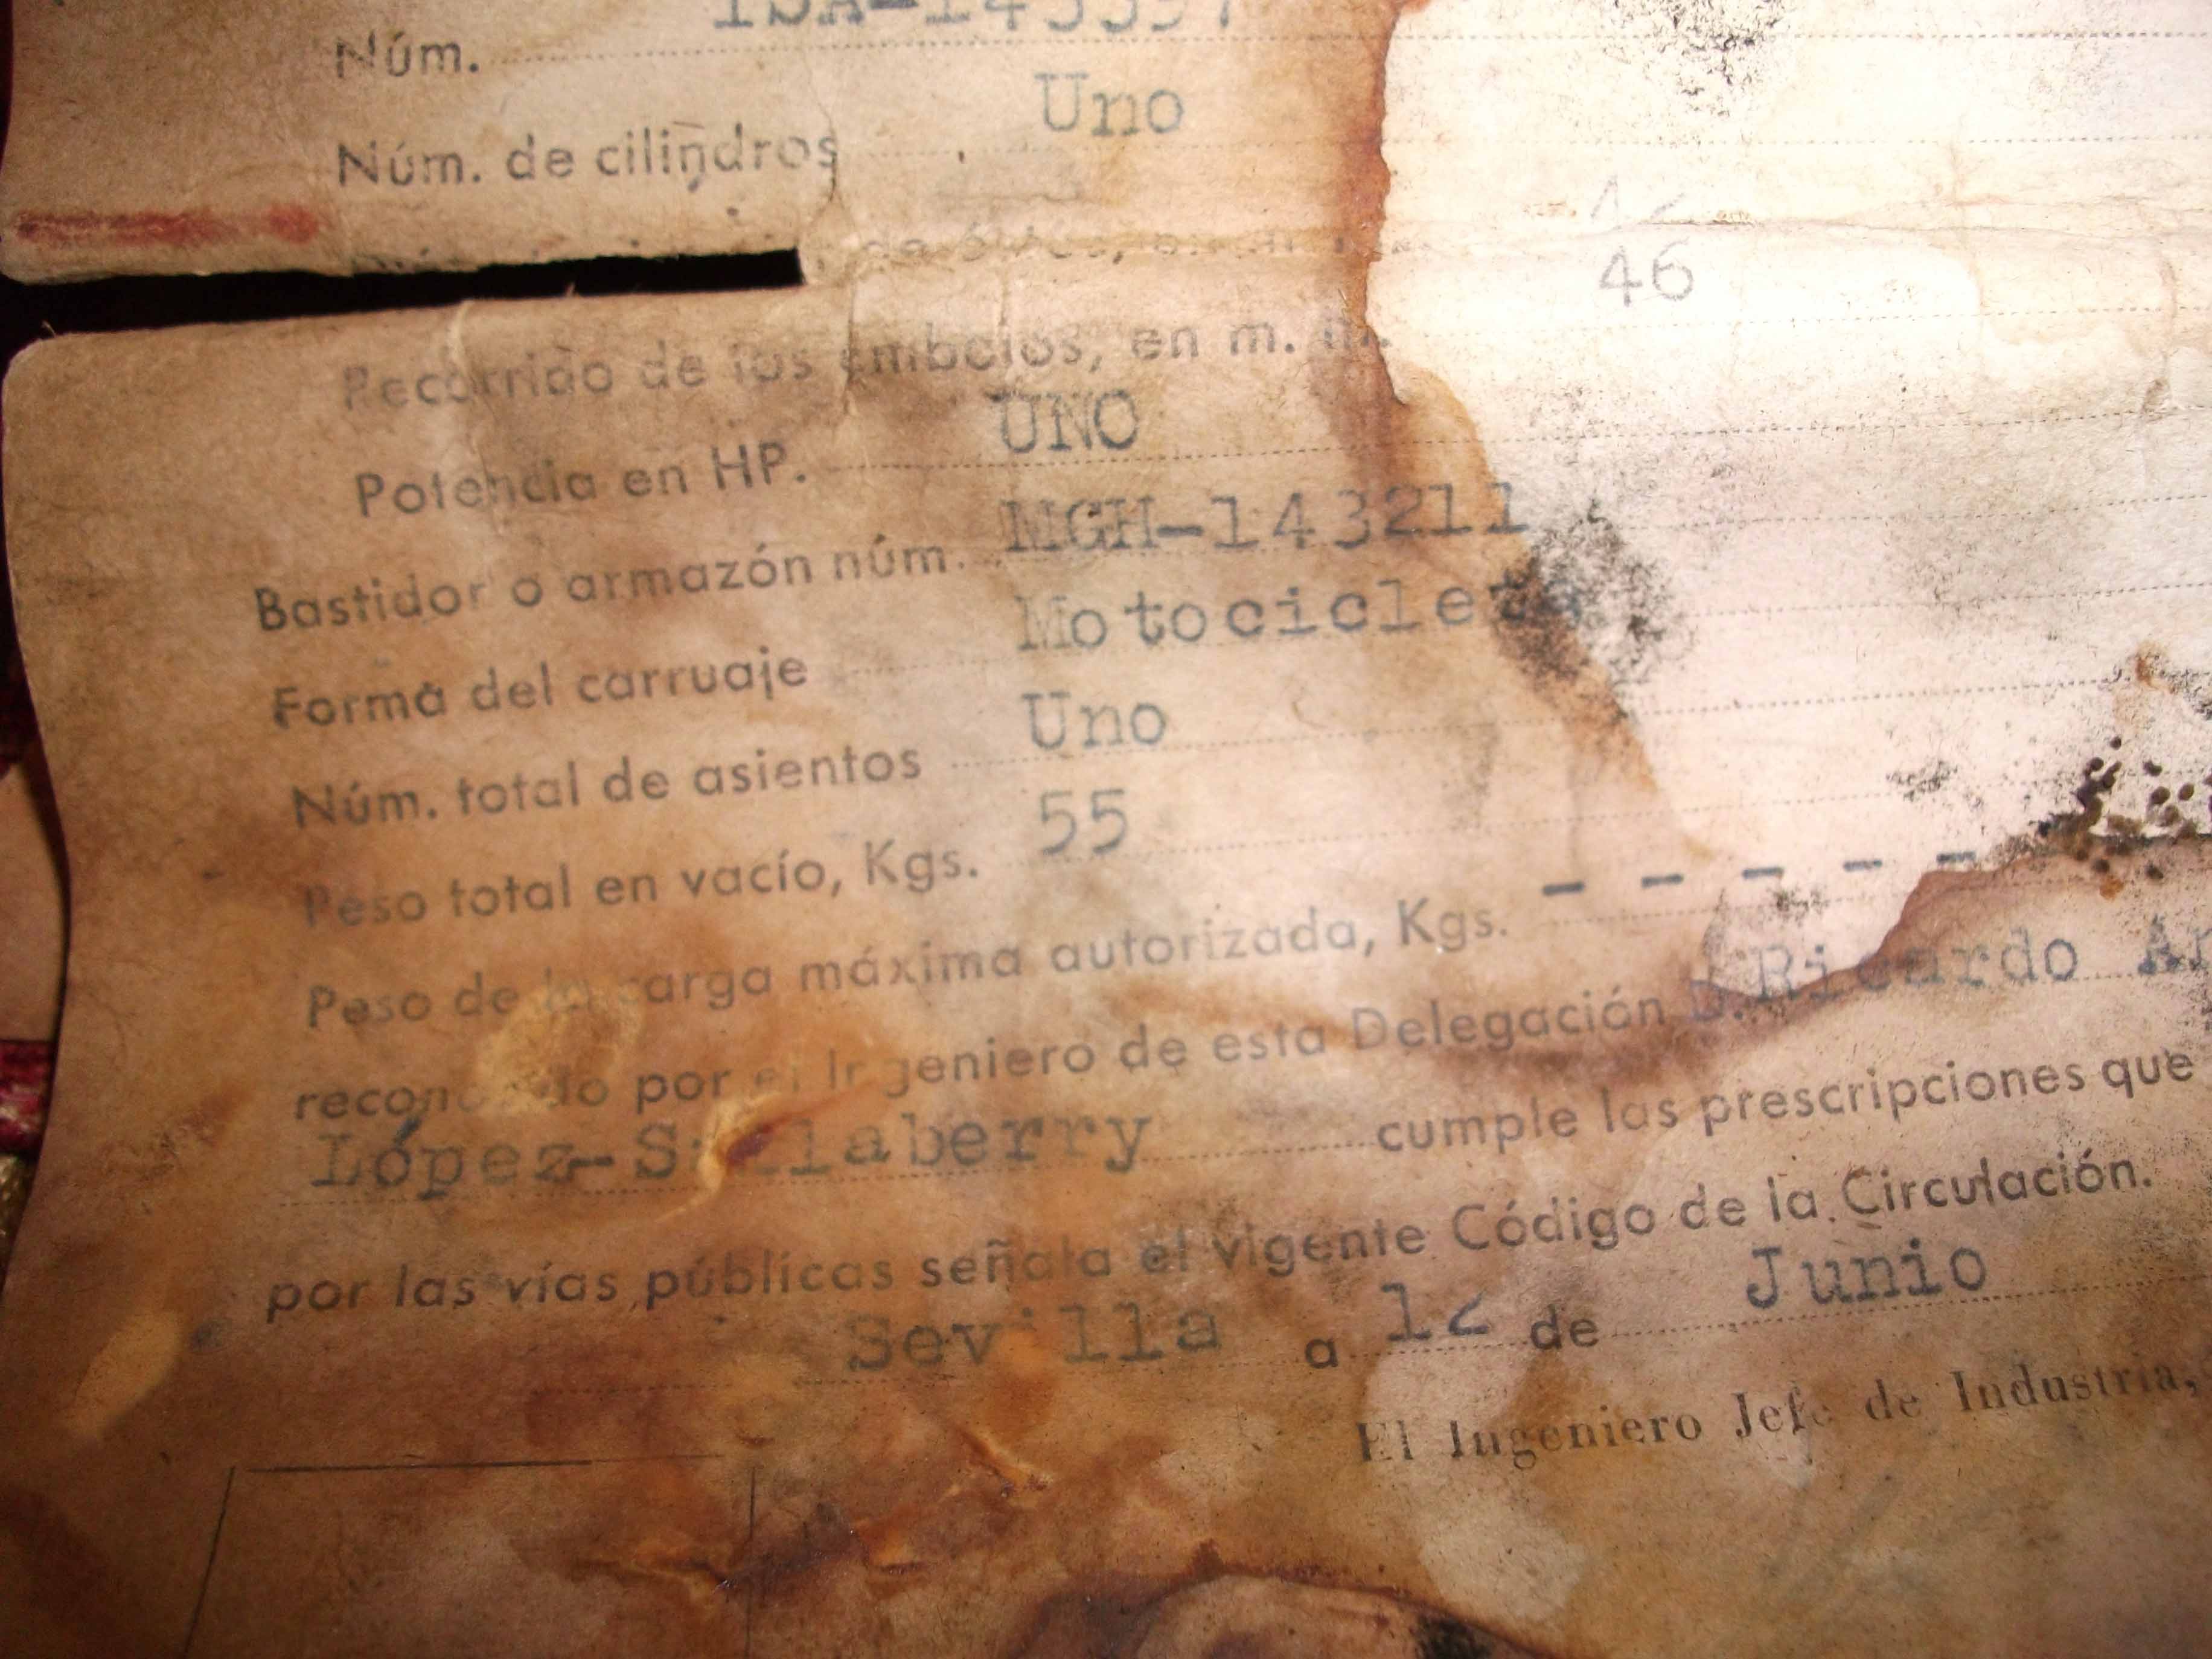 Núm.
Uno
Núm. de cilindros
46
Recorrido de los émbolos, en m. m.
UNO
Potencia en HP.
MGH-143211
Bastidor o armazón núm.
Motocicleta
Forma del carruaje
Uno
Núm. total de asientos
55
Peso total en vacío, Kgs.
Peso de la carga máxima autorizada, Kgs. - - - - -
reconocido por el Ingeniero de esta Delegación D. Ricardo
López- cumple las prescripciones que
por las vías públicas señala el vigente Código de la Circulación.
Sevilla a 12 de Junio
El Ingeniero Jefe de Industria,